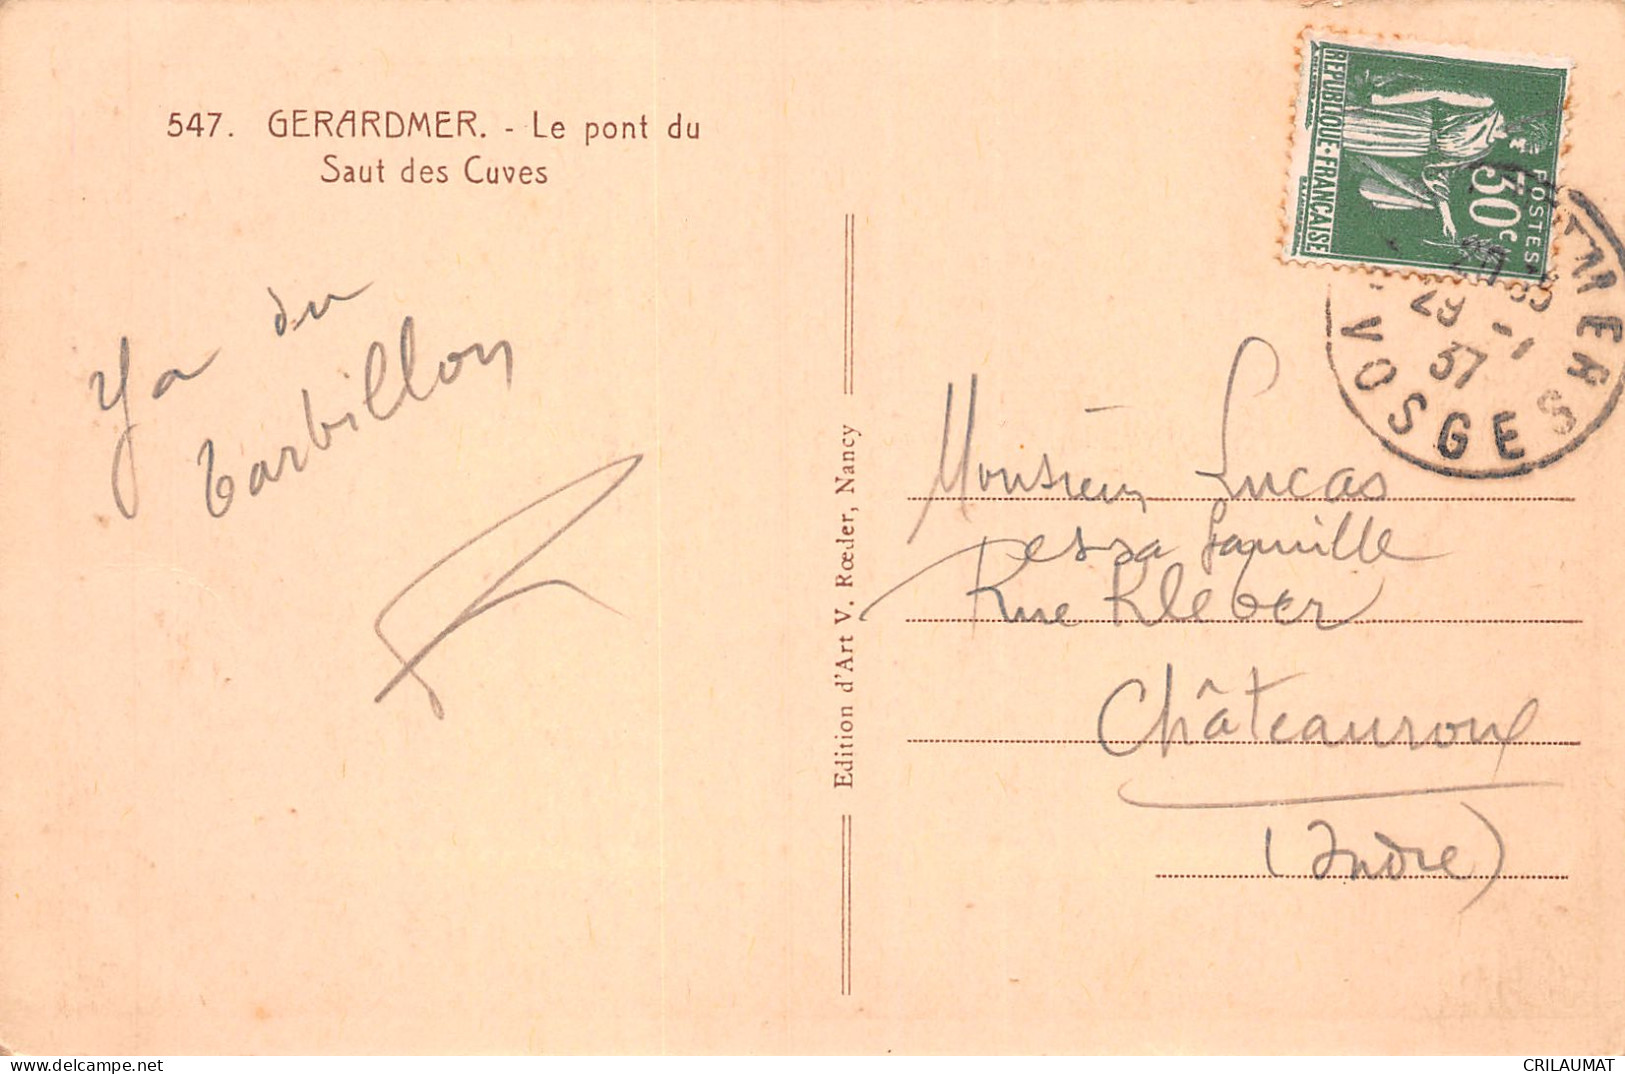 547. GERARDMER. - Le pont du
Saut des Cuves
Ya du
tarbillon
Edition d'Art V. Rœder, Nancy
REPUBLIQUE·FRANÇAISE
POSTES
30c
29 -1
37
VOSGES
Monsieur Lucas
et sa famille
Rue Kleber
Châteauroux
(Indre)
CRILAUMAT